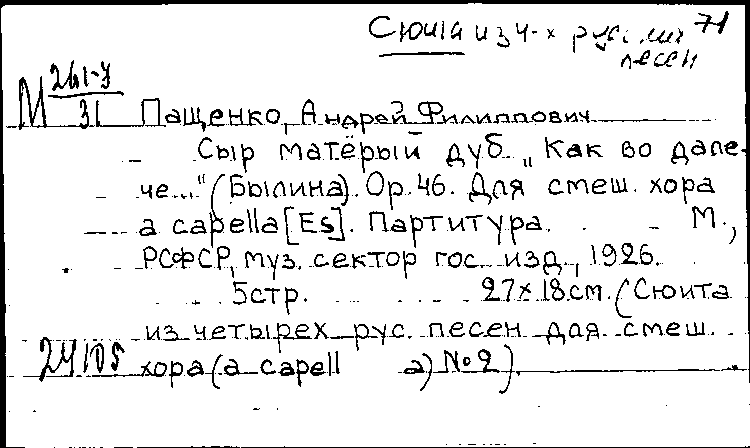 Сюита из 4-х русских 71
песен
М 261-7
31
Пащенко, Андрей Филиппович
Сыр матёрый дуб „Как во дале-
че..." (Былина). Op. 46. Для смеш. хора
a capella [Es]. Партитура. М.,
РСФСР, муз. сектор гос. изд., 1926.
5 стр. 27×18 см. (Сюита
из четырех рус. песен для смеш.
24105 хора (a capell a) № 2).